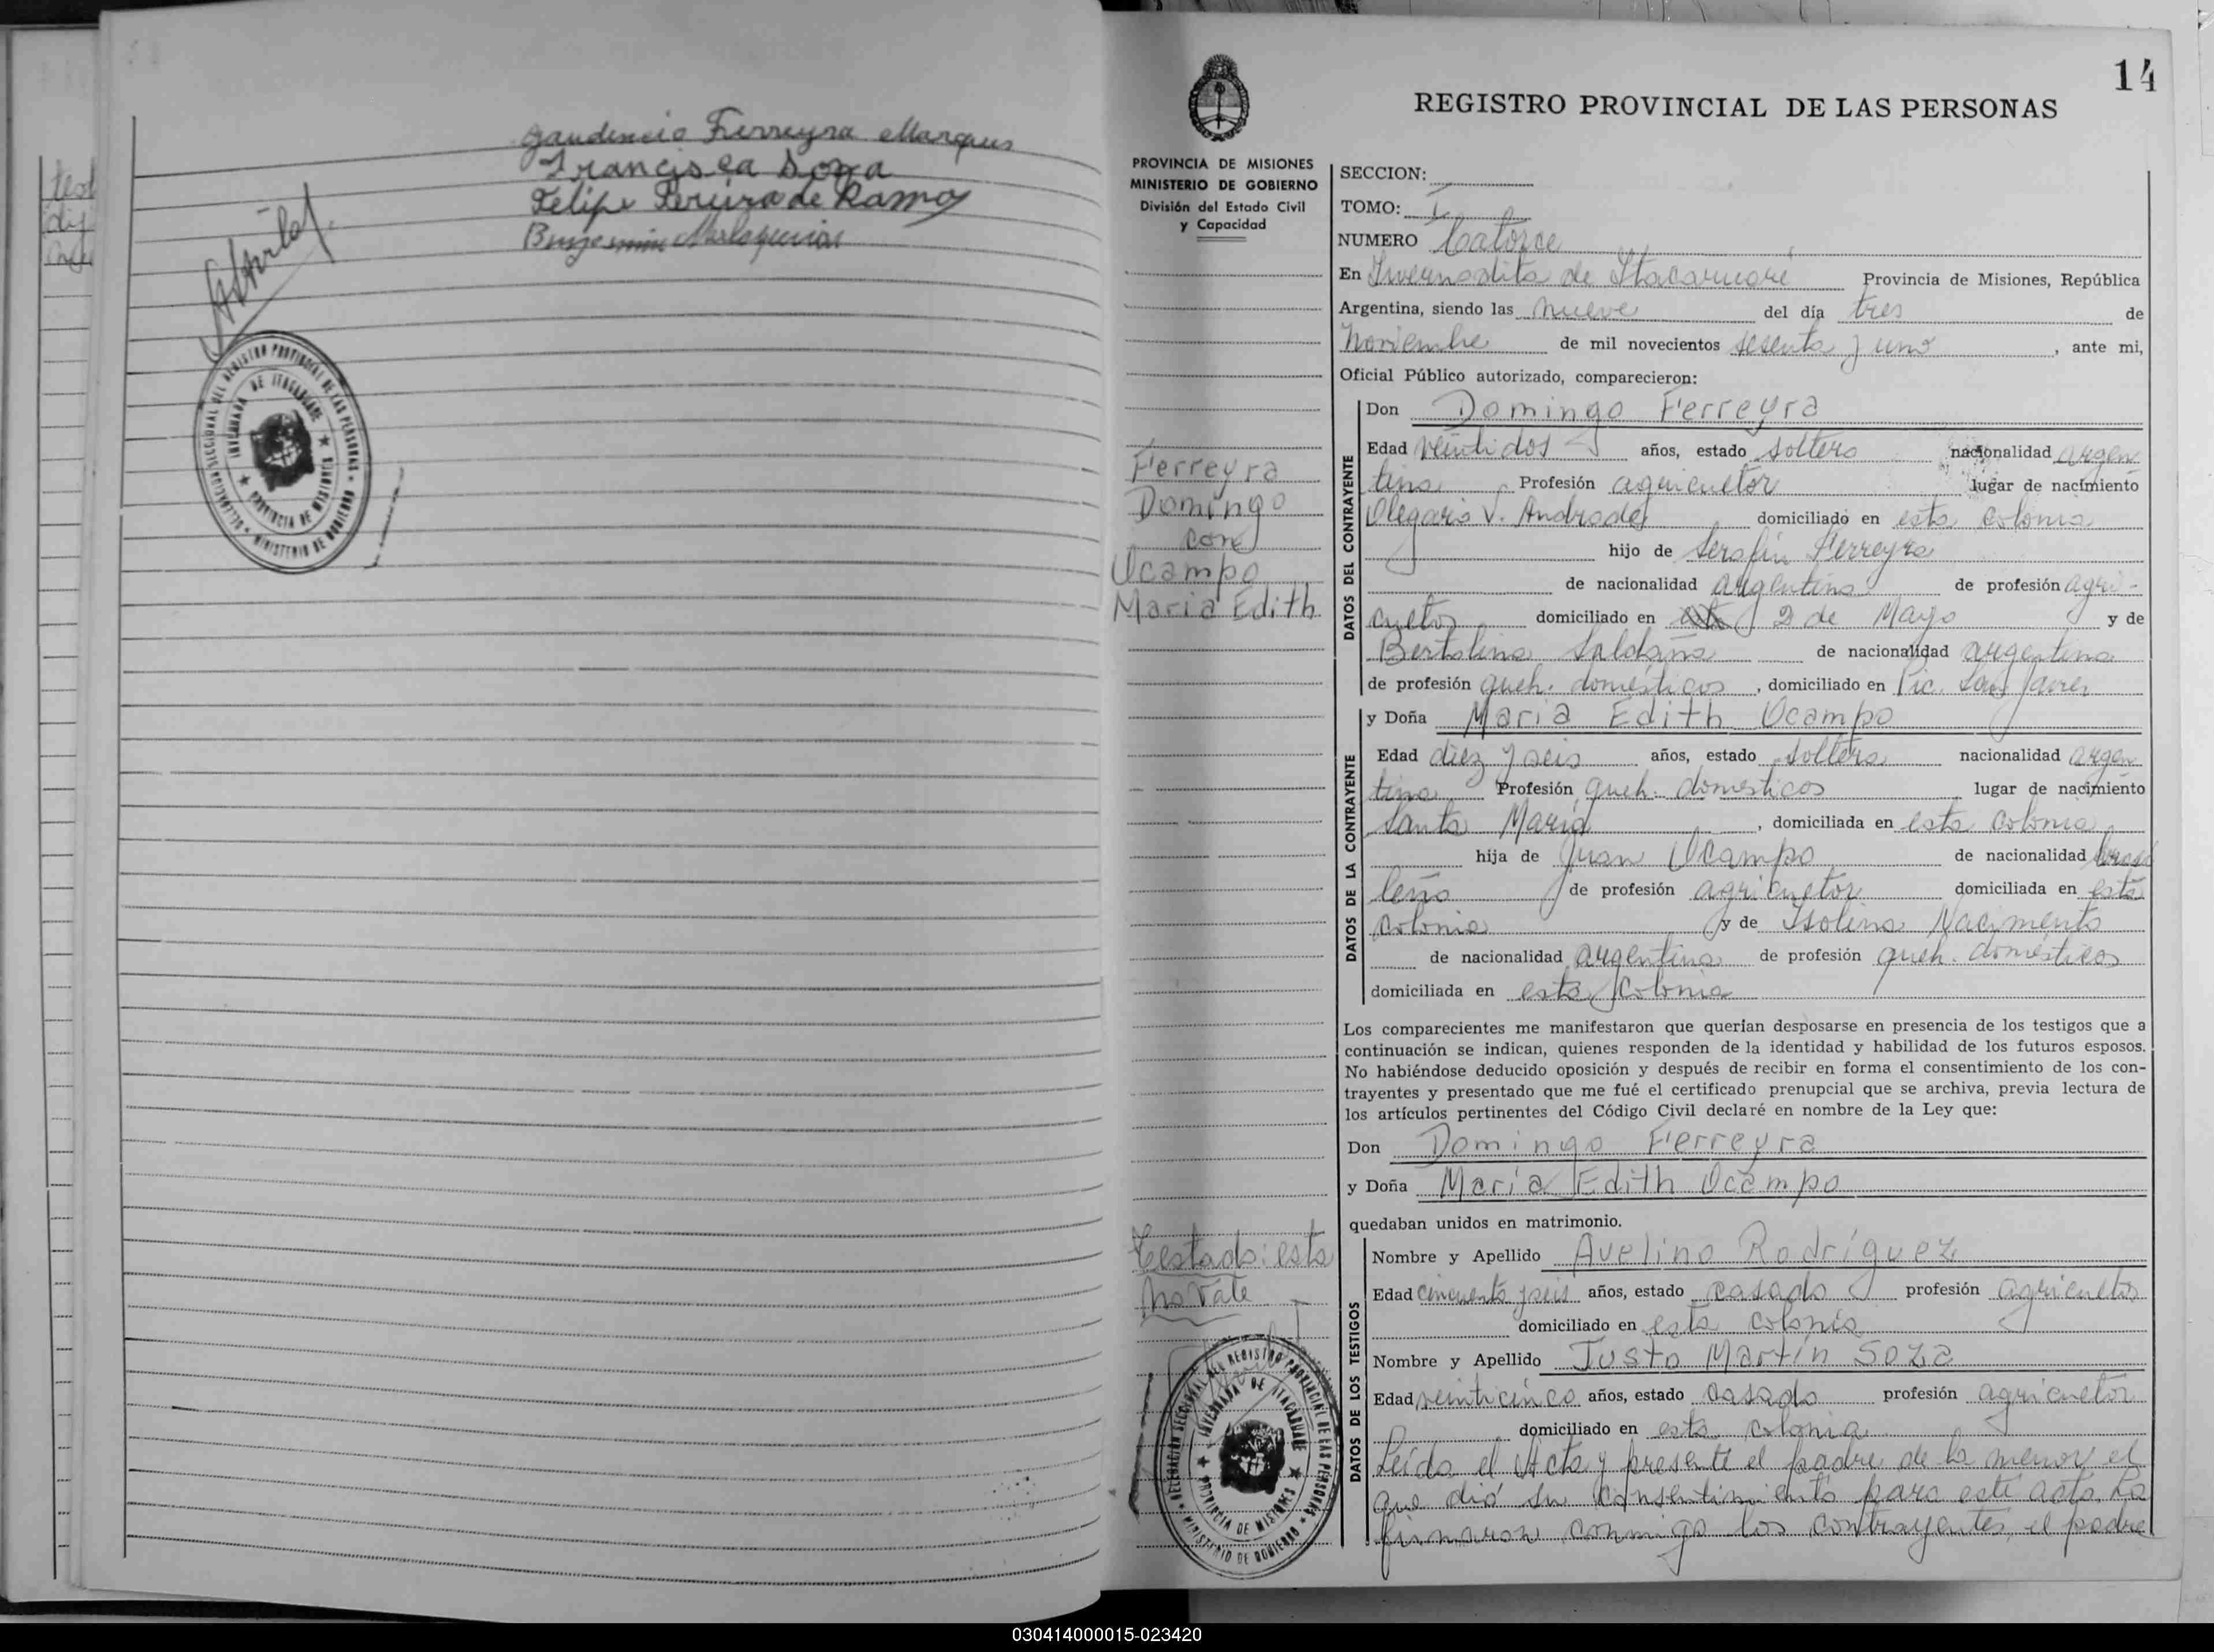 Gaudencio Ferreyra Marques
Francisca Soza
Felipe Pereira de Ramos
DELEGACION SECCIONAL DEL REGISTRO PROVINCIAL DE LAS PERSONAS
INVERNADA DE ITACARUARE
PROVINCIA DE MISIONES
MINISTERIO DE GOBIERNO
14
REGISTRO PROVINCIAL DE LAS PERSONAS
PROVINCIA DE MISIONES
MINISTERIO DE GOBIERNO
División del Estado Civil
y Capacidad
Ferreyra
Domingo
con
Ocampo
Maria Edith
Testado: esta
no vale
DELEGACION SECCIONAL DEL REGISTRO PROVINCIAL DE LAS PERSONAS
INVERNADA DE ITACARUARE
PROVINCIA DE MISIONES
MINISTERIO DE GOBIERNO
SECCION:
TOMO: I
NUMERO Catorce
En Invernadita de Itacaruaré Provincia de Misiones, República
Argentina, siendo las nueve del día tres de
Noviembre de mil novecientos sesenta y uno, ante mi,
Oficial Público autorizado, comparecieron:
DATOS DEL CONTRAYENTE
Don Domingo Ferreyra
Edad veintidos años, estado soltero nacionalidad argen
tina Profesión agricultor lugar de nacimiento
Olegario V. Andrade domiciliado en esta colonia
hijo de Serafin Ferreyra
de nacionalidad argentina de profesión agri-
cultor domiciliado en 2 de Mayo y de
Bertolina Saldaña de nacionalidad argentina
de profesión queh. domésticos, domiciliado en Pic. San Javier
DATOS DE LA CONTRAYENTE
y Doña Maria Edith Ocampo
Edad diez y seis años, estado soltera nacionalidad argen
tina Profesión queh. domesticos lugar de nacimiento
Santa María, domiciliada en esta colonia
hija de Juan Ocampo de nacionalidad brasi
leño de profesión agricultor domiciliada en esta
colonia y de Isolina Nacimento
de nacionalidad argentina de profesión queh. domésticos
domiciliada en esta colonia
Los comparecientes me manifestaron que querían desposarse en presencia de los testigos que a
continuación se indican, quienes responden de la identidad y habilidad de los futuros esposos.
No habiéndose deducido oposición y después de recibir en forma el consentimiento de los con-
trayentes y presentado que me fué el certificado prenupcial que se archiva, previa lectura de
los artículos pertinentes del Código Civil declaré en nombre de la Ley que:
Don Domingo Ferreyra
y Doña María Edith Ocampo
quedaban unidos en matrimonio.
DATOS DE LOS TESTIGOS
Nombre y Apellido Avelino Rodríguez
Edad cincuenta y seis años, estado casado profesión agricultor
domiciliado en esta colonia
Nombre y Apellido Justo Martín Soza
Edad veinticinco años, estado casado profesión agricultor
domiciliado en esta colonia
Leida el Acta y presente el padre de la menor el
que dió su consentimiento para este acto. La
firmaron conmigo los contrayentes, el padre
030414000015-023420